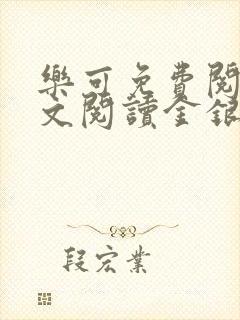 樂可免費閱
文閱讀金銀
段宏業